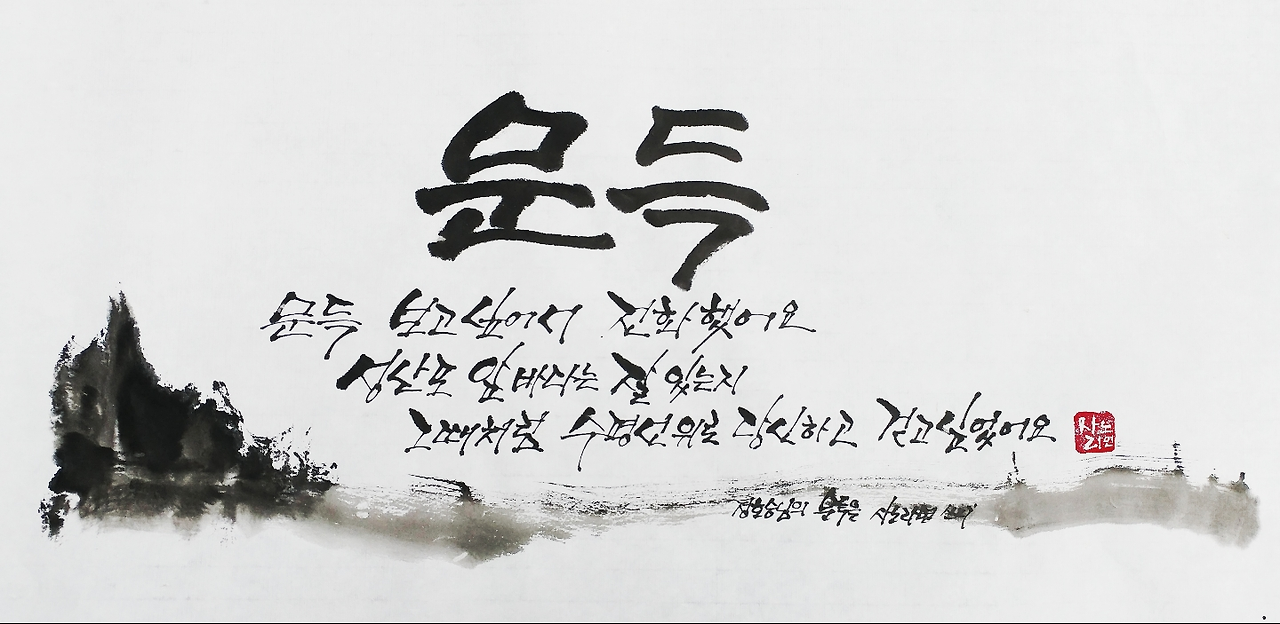 문득
문득 보고싶어서 전화했어요
성산포 앞바다는 잘 있는지
그때처럼 수평선위로 당신하고 걷고싶었어요
사노라면
정호승님의 문득을 사노라면